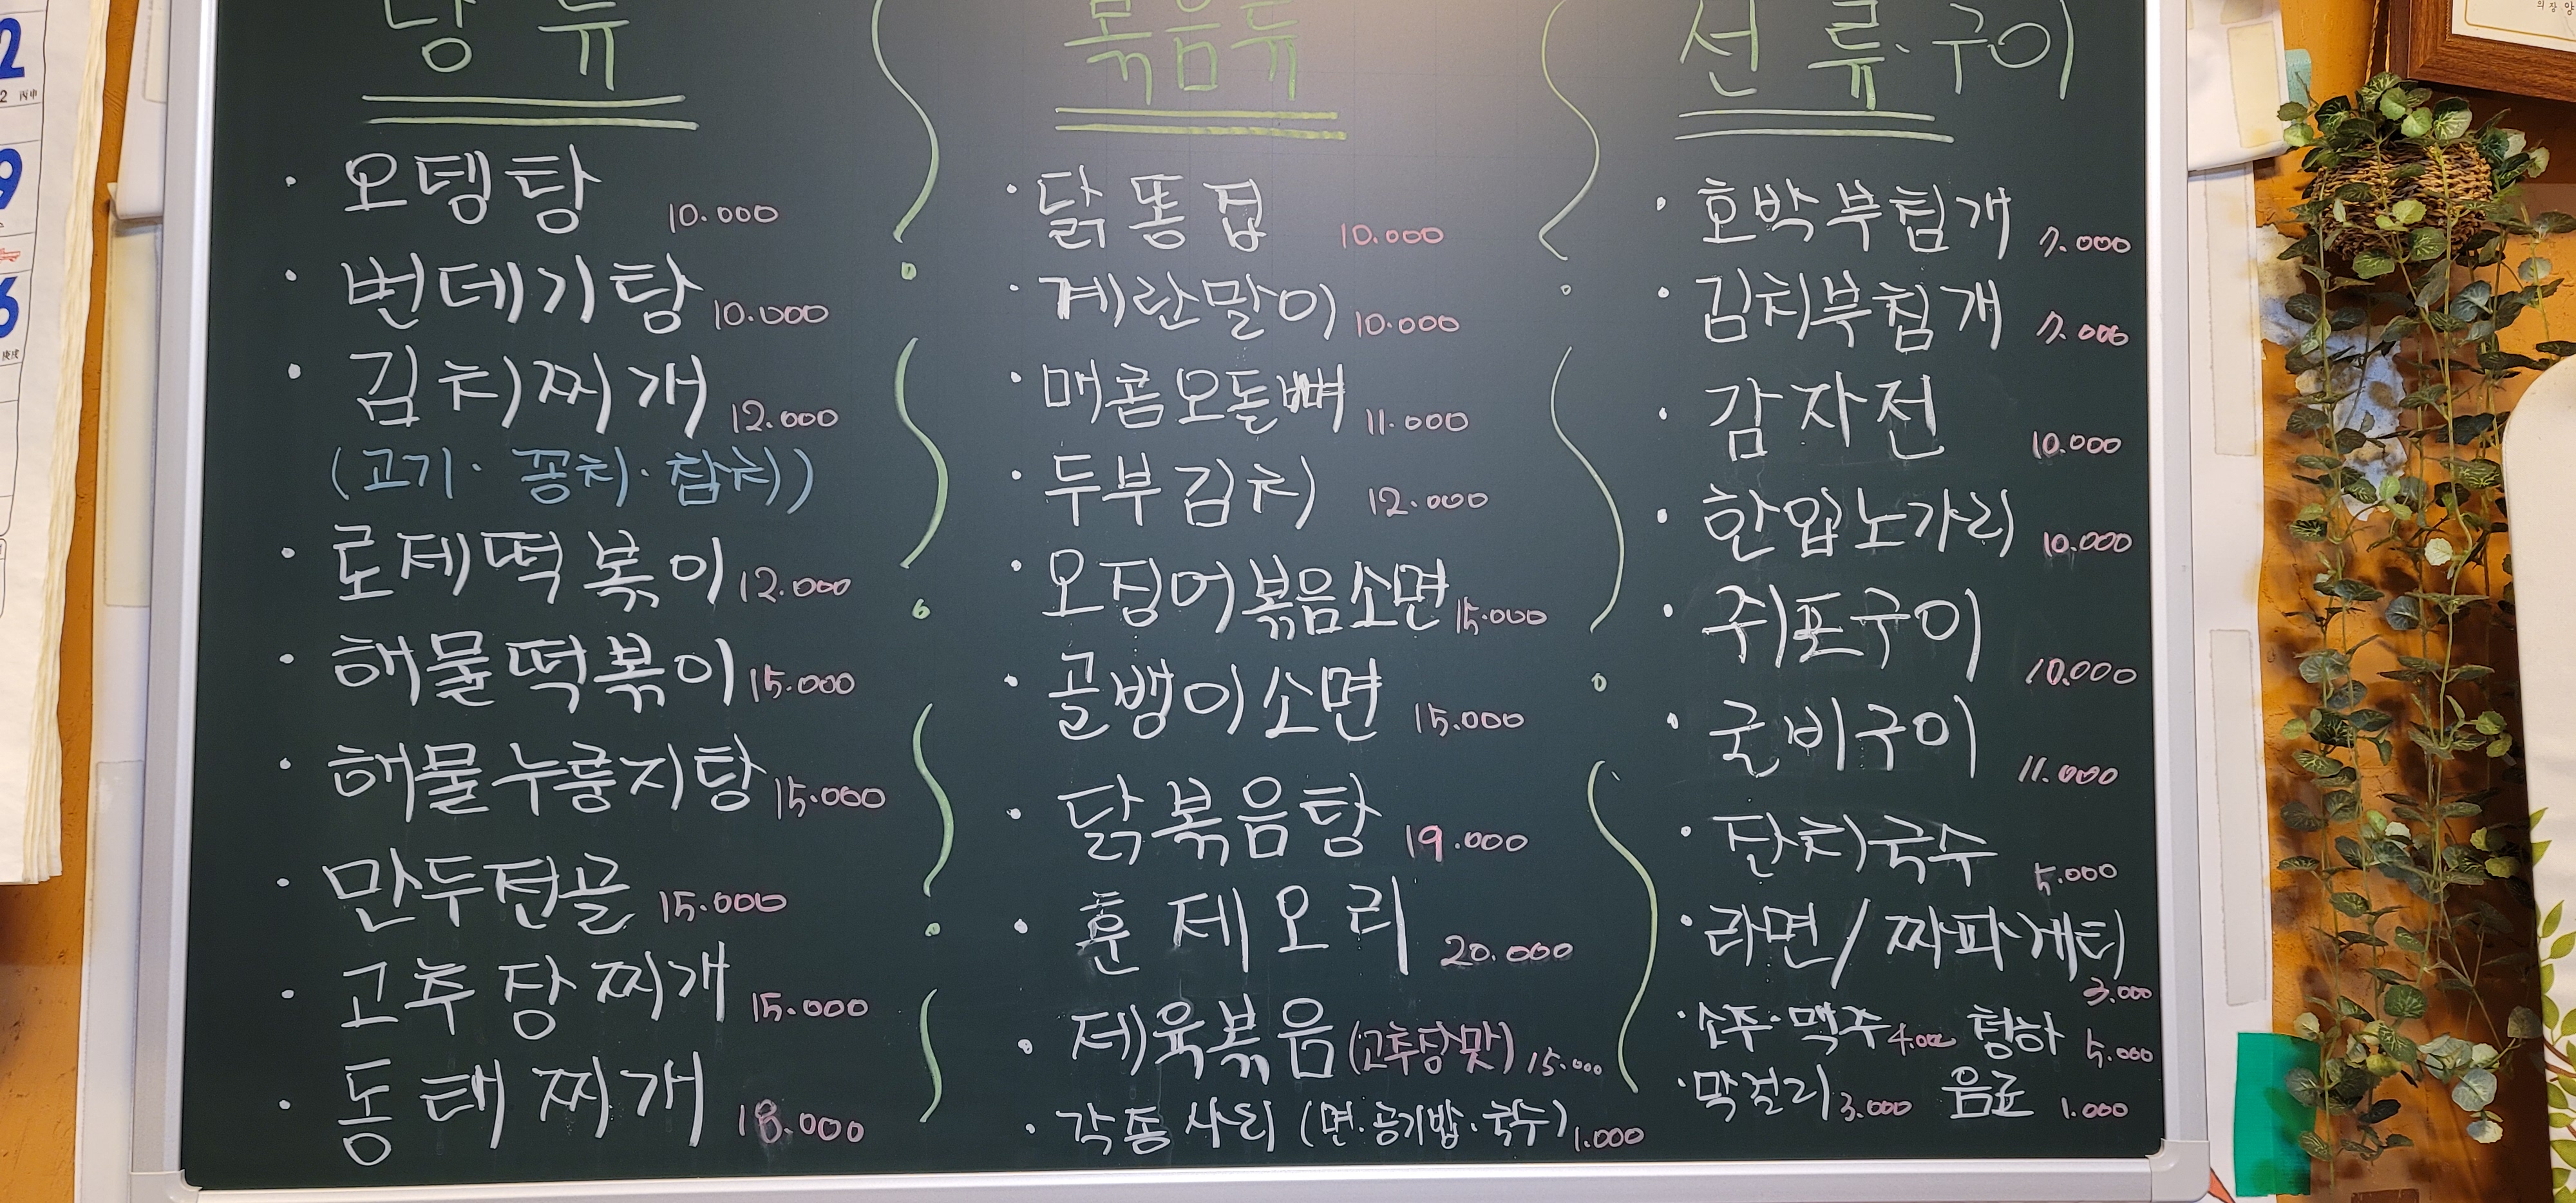 탕류
오뎅탕 10.000
번데기탕 10.000
김치찌개 12.000
(고기·꽁치·참치)
로제떡볶이 12.000
해물떡볶이 15.000
해물누룽지탕 15.000
만두전골 15.000
고추장찌개 15.000
동태찌개 18.000
볶음류
닭똥집 10.000
계란말이 10.000
매콤오돌뼈 11.000
두부김치 12.000
오징어볶음소면 15.000
골뱅이소면 15.000
닭볶음탕 19.000
훈제오리 20.000
제육볶음(고추장맛) 15.000
각종사리(면·공기밥·국수) 1.000
전류·구이
호박부침개 7.000
김치부침개 7.000
감자전 10.000
한입노가리 10.000
쥐포구이 10.000
굴비구이 11.000
잔치국수 5.000
라면/짜파게티 3.000
소주·맥주 4.000 청하 5.000
막걸리 3.000 음료 1.000
2
2 丙申
9
6
庚戌
의장